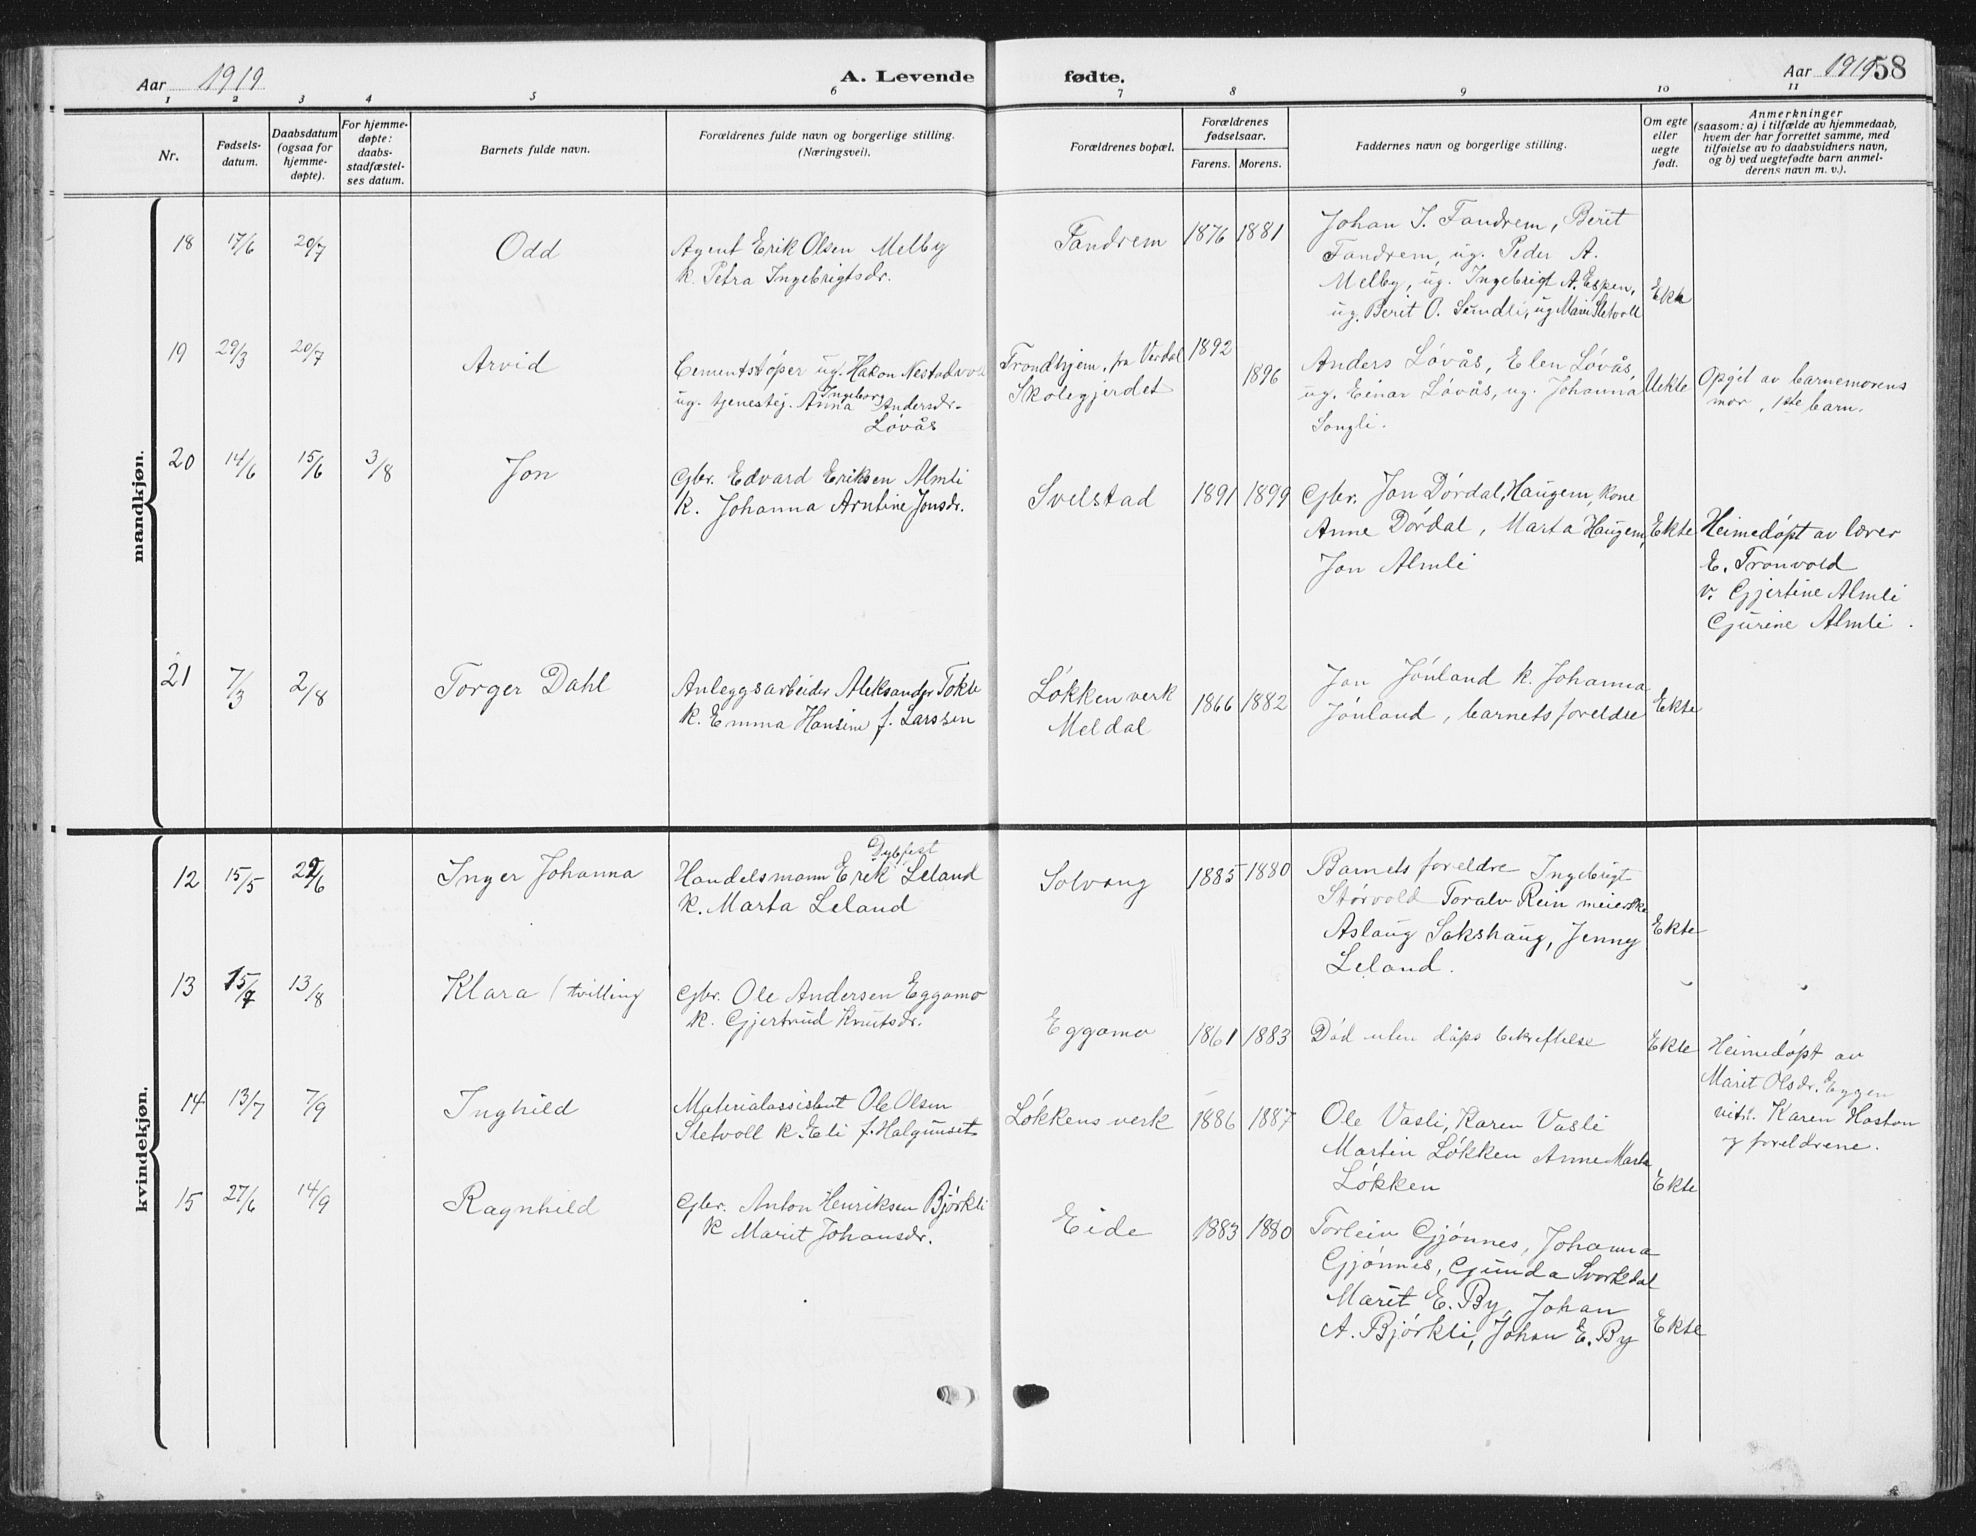 Aar 1919 A. Levende fødte. Aar 1919 58
1 2 3 4 5 6 7 8 9 10 11
Nr. Fødselsdatum. Daabsdatum (ogsaa for hjemmedøpte). For hjemmedøpte: daabsstadfæstelses datum. Barnets fulde navn. Forældrenes fulde navn og borgerlige stilling. (Næringsvei). Forældrenes bopæl. Forældrenes fødselsaar. Farens. Morens. Faddernes navn og borgerlige stilling. Om egte eller uegte født. Anmerkninger (saasom: a) i tilfælde av hjemmedaab, hvem der har forrettet samme, med tilføielse av to daabsvidners navn, og b) ved uegtefødte barn anmelderens navn m. v.).
mandkjøn.
18 17/6 20/7 Odd Agent Erik Olsen Melby Fandrem 1876 1881 Johan I. Fandrem, Berit
k. Petra Ingebrigtsdr. Fandrem, ug. Peder A.
Melby, ug. Ingebrigt A. Espen, Ekte
ug. Berit O. Sundli, ug Marie Sletvoll
19 29/3 20/7 Arvid Cementstøper ug. Hakon Nestadvoll Trondhjem, fra Verdal 1892 Anders Løvås, Elen Løvås,
ug. tjenestej. Anna Ingeborg Andersdr. Skolegjerdet 1896 ug. Einar Løvås, ug. Johanna Uekte Opgit av barnemorens
Løvås Songli. mor, 1ste barn.
20 14/6 15/6 3/8 Jon Gbr. Edvard Eriksen Almli Svelstad 1891 1899 Gbr. Jon Dørdal, Haugem, kone
k. Johanna Arntine Jonsdr. Anne Dørdal, Marta Haugem, Ekte Heimedøpt av lærer
Jon Almli E. Tronvold
v. Gjertine Almli
Gurine Almli.
21 7/3 2/8 Torger Dahl Anleggsarbeider Aleksander Tokle Løkken verk 1866 1882 Jon Jónland k. Johanna
k. Emma Hansine f. Larssen Meldal Jónland, barnets foreldre Ekte
kvindekjøn.
12 15/5 22/6 Inger Johanna Handelsmann Erik Dybfest Leland Solvang 1885 1880 Barnets foreldre Ingebrigt
k. Marta Leland Størvold Toralv Rein meierske
Aslaug Sakshaug, Jenny Ekte
Leland.
13 15/7 13/8 Klara (tvilling Gbr. Ole Andersen Eggamo
k. Gjertrud Knutsdr. Eggamo 1861 1883 Død uten dåps bekreftelse Ekte Heimedøpt av
Marit Olsdr. Eggen
vitn. Karen Hoston
og foreldrene.
14 13/7 7/9 Inghild Materialassistent Ole Olsen Løkkens verk 1886 1887 Ole Vasli, Karen Vasli
Sletvoll k. Eli f. Halgunset Martin Løkken Anne Marta
Løkken Ekte
15 27/6 14/9 Ragnhild Gbr. Anton Henriksen Bjørkli Eide 1883 1880 Torleiv Gjønnes, Johanna
k Marit Johansdr. Gjønnes, Gunda Svorkdal
Marit E. By, Johan
A. Bjørkli, Johan E. By Ekte